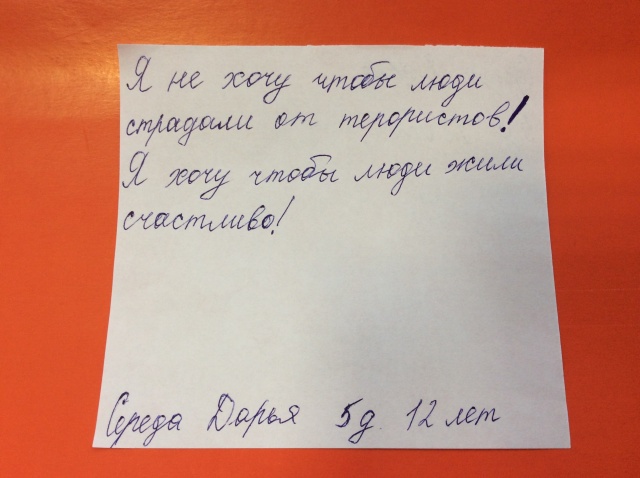 Я не хочу чтобы люди
страдали от терористов!
Я хочу чтобы люди жили
счастливо!
Середа Дарья 5д. 12 лет